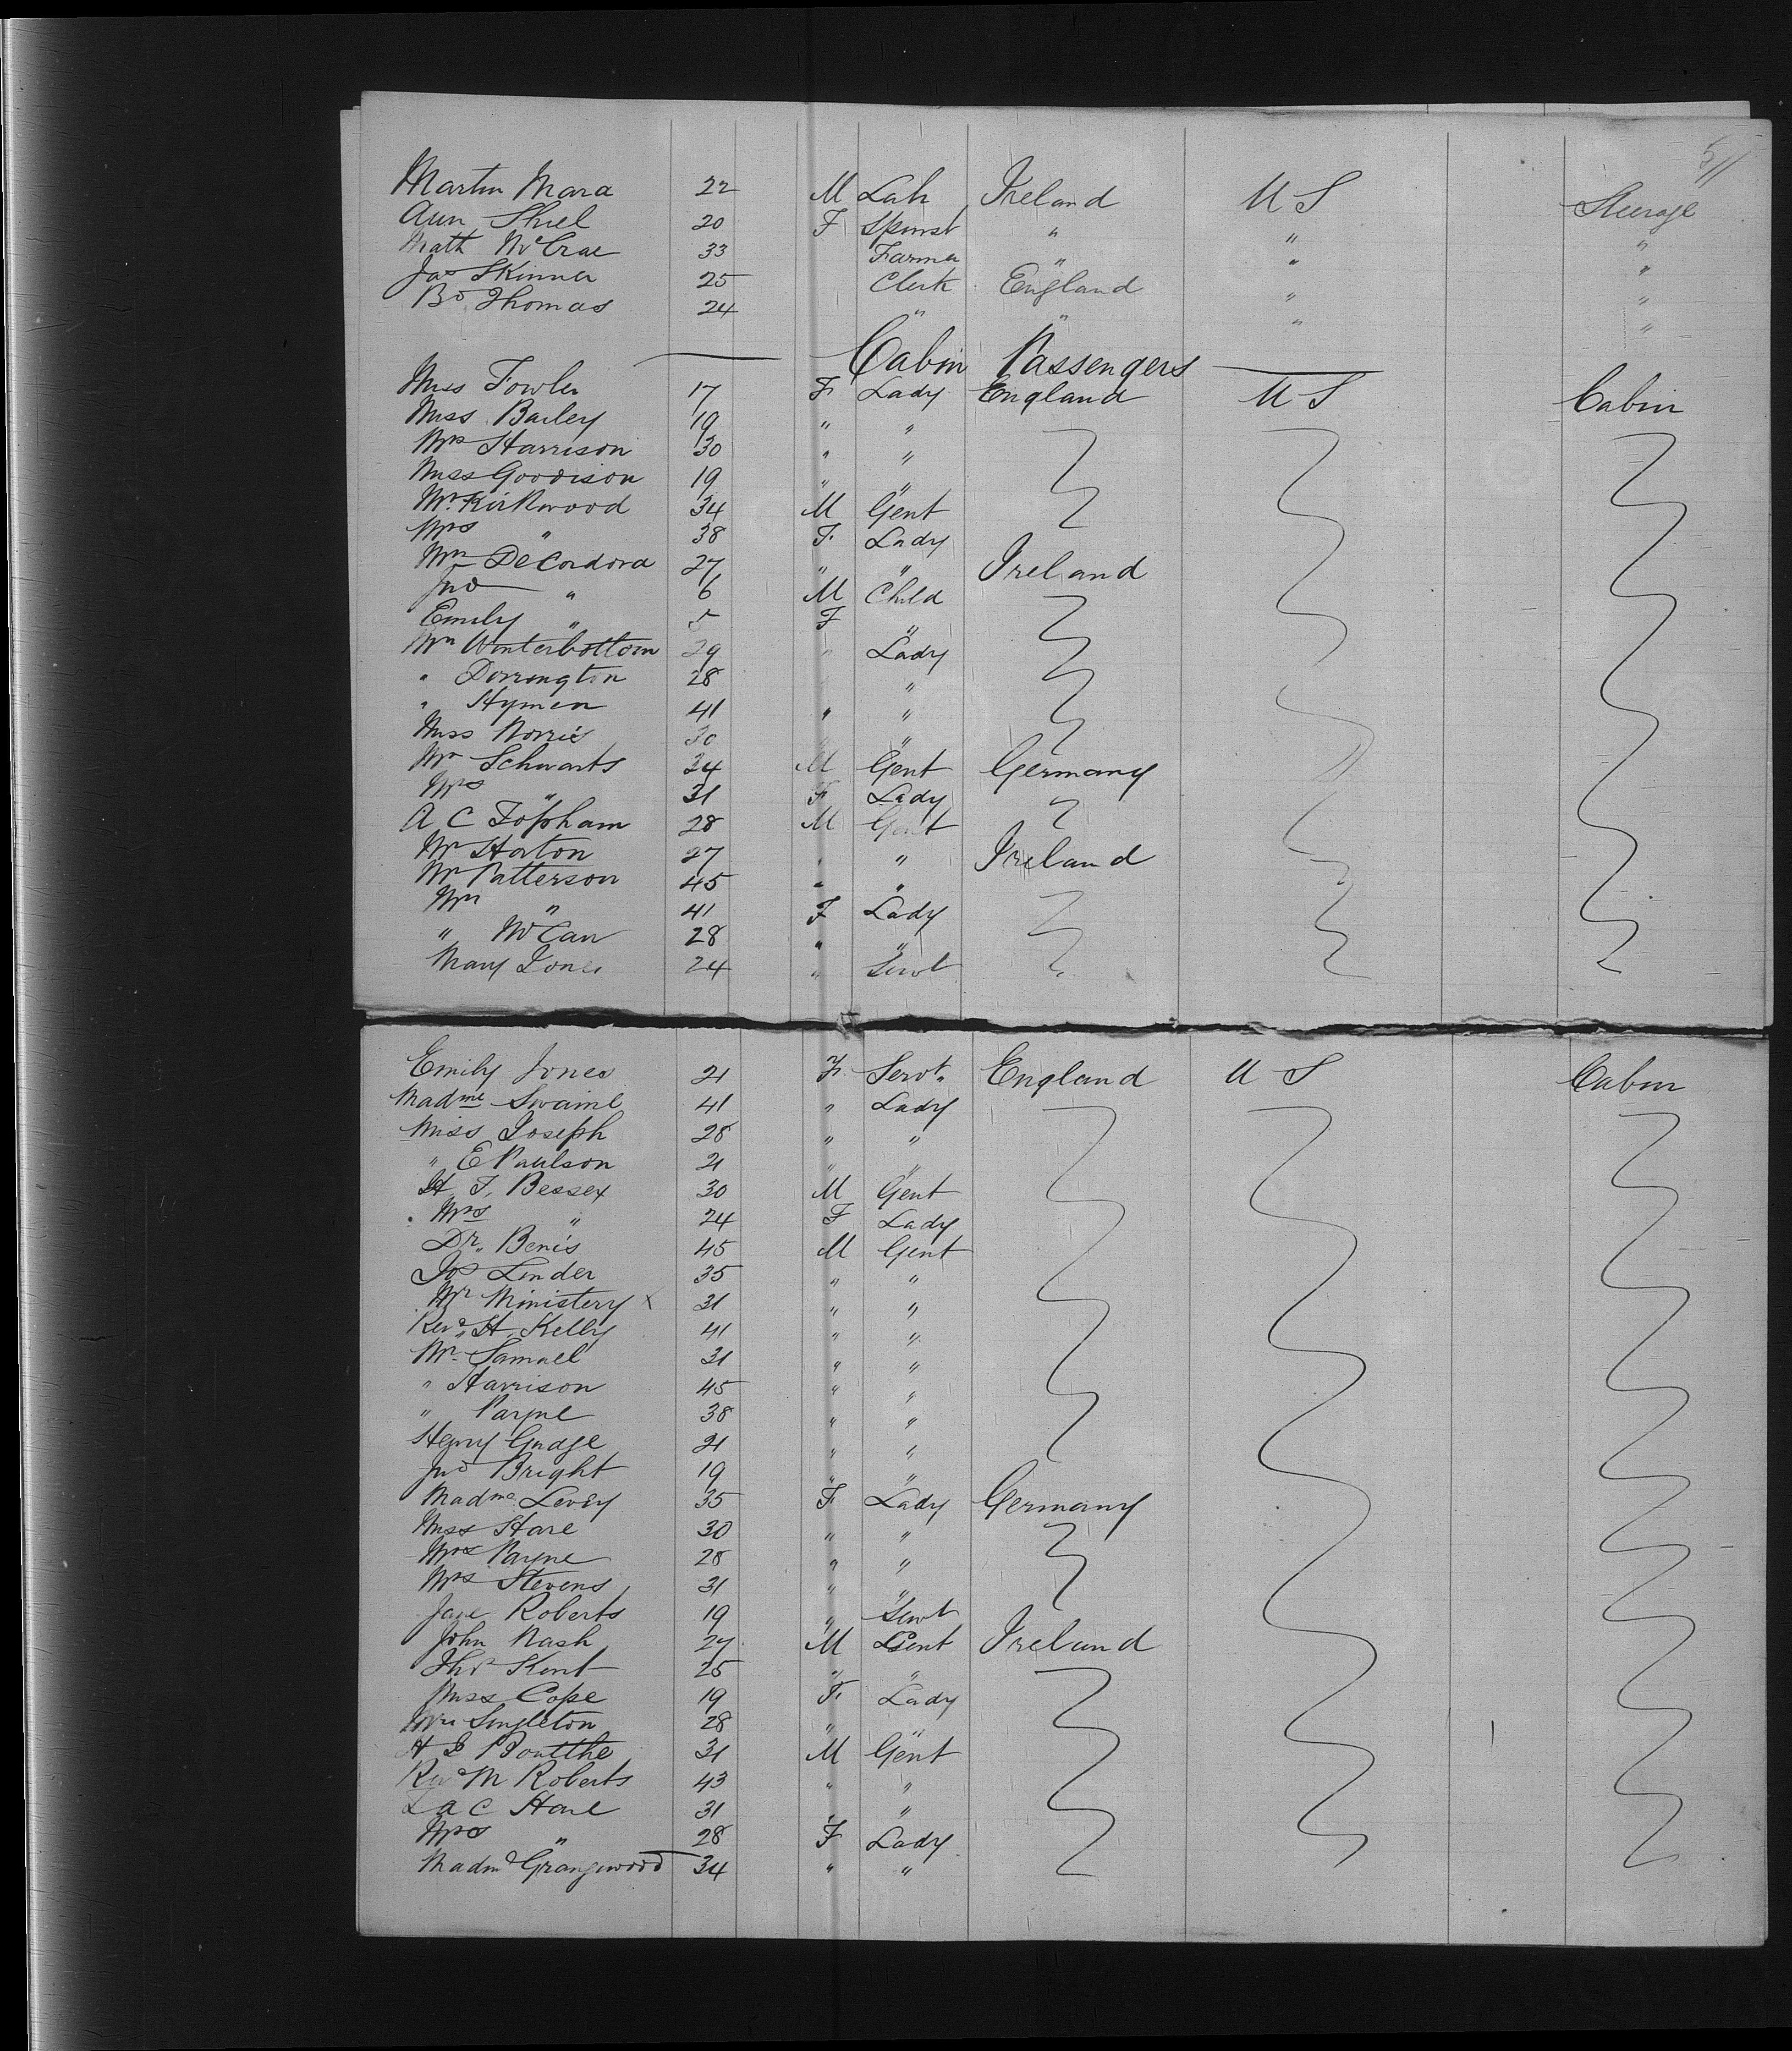 5
Martin Mara 22 M Lab Ireland U S Steerage
Ann Shiel 20 F Spinst " " "
Math McCrae 33 Farmer " " "
Jas Skinner 25 Clerk England " "
Bd Thomas 24 " " " "
Cabin Passengers
Miss Fowler 17 F Lady England U S Cabin
Miss Bailey 19 " "
Mrs Harrison 30 " "
Miss Goodison 19 " "
Mr Kirkwood 34 M Gent
Mrs " 38 F Lady
Mrs DeCordova 27 " " Ireland
Jno " 6 M Child
Emily " 5 F "
Mrs Winterbottom 29 " Lady
" Dorrington 28 "
" Hymen 41 " "
Miss Norris 30 " "
Mr Schwarts 34 M Gent Germany
Mrs " 31 F Lady
A C Topham 28 M Gent
Mr Horton 27 " " Ireland
Mr Patterson 45 " "
Mrs " 41 F Lady
" McCan 28 " "
Mary Jones 24 " Servt
Emily Jones 21 F Servt England U S Cabin
Madme Swaine 41 " Lady
Miss Joseph 28 " "
" E Paulson 21 " "
H. T. Bessex 30 M Gent
Mrs " 24 F Lady
Dr. Benis 45 M Gent
Jos Linder 35 " "
Mr Ministery x 31 " "
Revd H. Kelly 41 " "
Mr Samuel 31 " "
" Harrison 45 " "
" Payne 38 " "
Henry Gudge 21 " "
Jno Bright 19 " "
Madme Levey 35 F Lady Germany
Miss Hare 30 " "
Mrs Payne 28 " "
Mrs Stevens 31 " "
Jane Roberts 19 " Servt
John Nash 27 M Gent Ireland
Thos Kent 25 " "
Miss Cope 19 F Lady
Mrs Singleton 28 " "
H Boutthe 31 M Gent
Revd M Roberts 43 " "
L a C Hare 31 "
Mrs " 28 F Lady
Madme Grangewood 34 " "